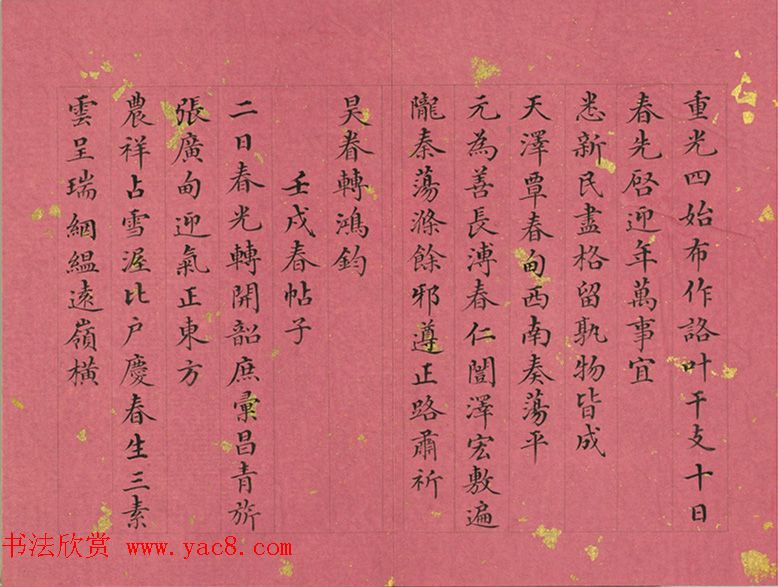 重光四始布作詻叶干支十日
春先啓迎年萬事宜
悉新民盡格留孰物皆成
天澤覃春甸西南奏蕩平
元為善長溥春仁闓澤宏敷遍
隴秦蕩滌餘邪遵正路肅祈
昊眷轉鴻鈞
壬戌春帖子
二日春光轉開韶庶彚昌青旂
張廣甸迎氣正東方
農祥占雪渥比戶慶春生三素
雲呈瑞絪縕遠嶺橫
书法欣赏 www.yac8.com